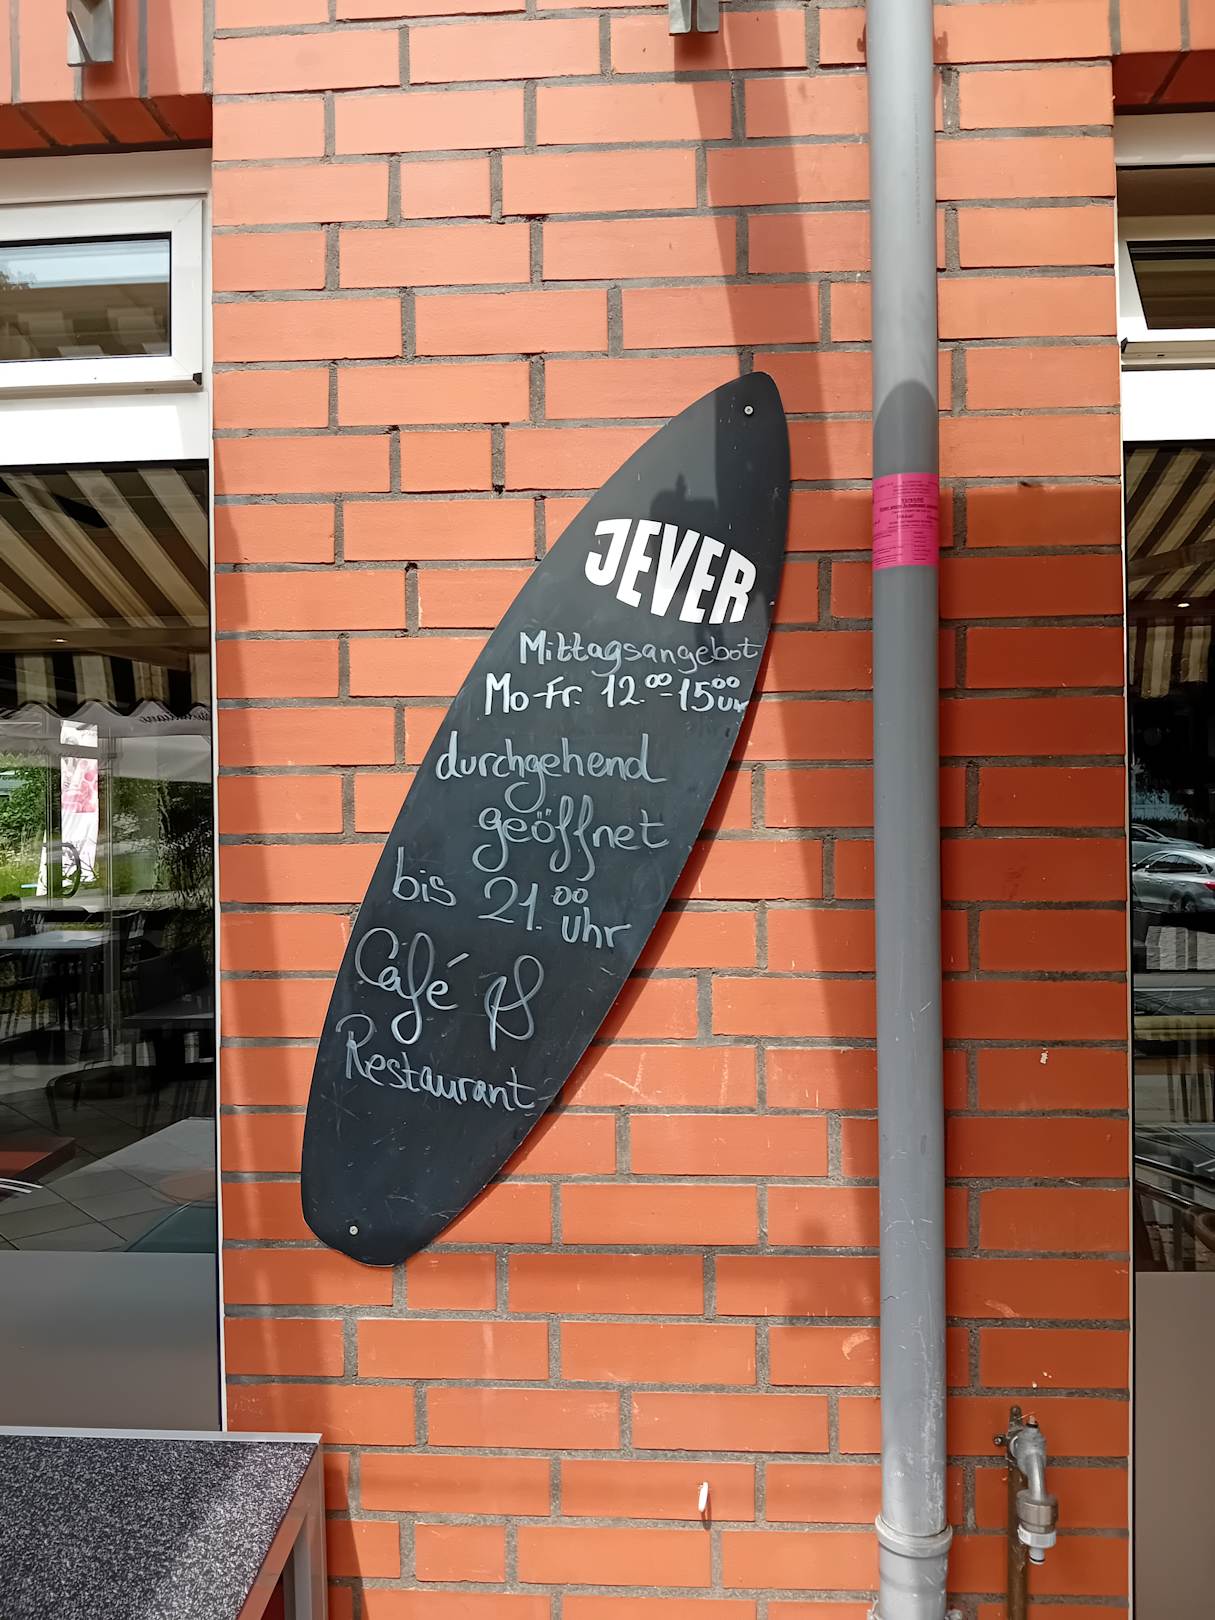 JEVER
Mittagsangebot
Mo-Fr. 12.00-15.00 Uhr
durchgehend
geöffnet
bis 21.00 Uhr
Café &
Restaurant